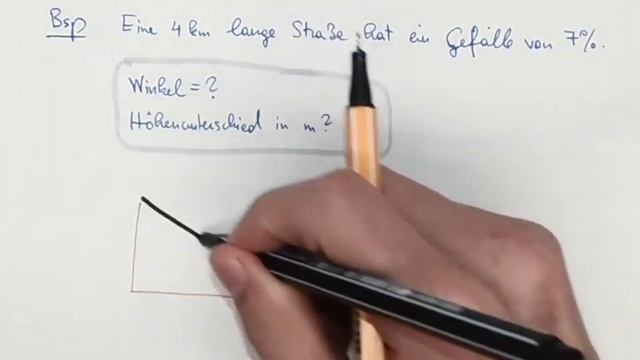 Bsp Eine 4 km lange Straße hat ein Gefälle von 7%.
Winkel = ?
Höhenunterschied in m?